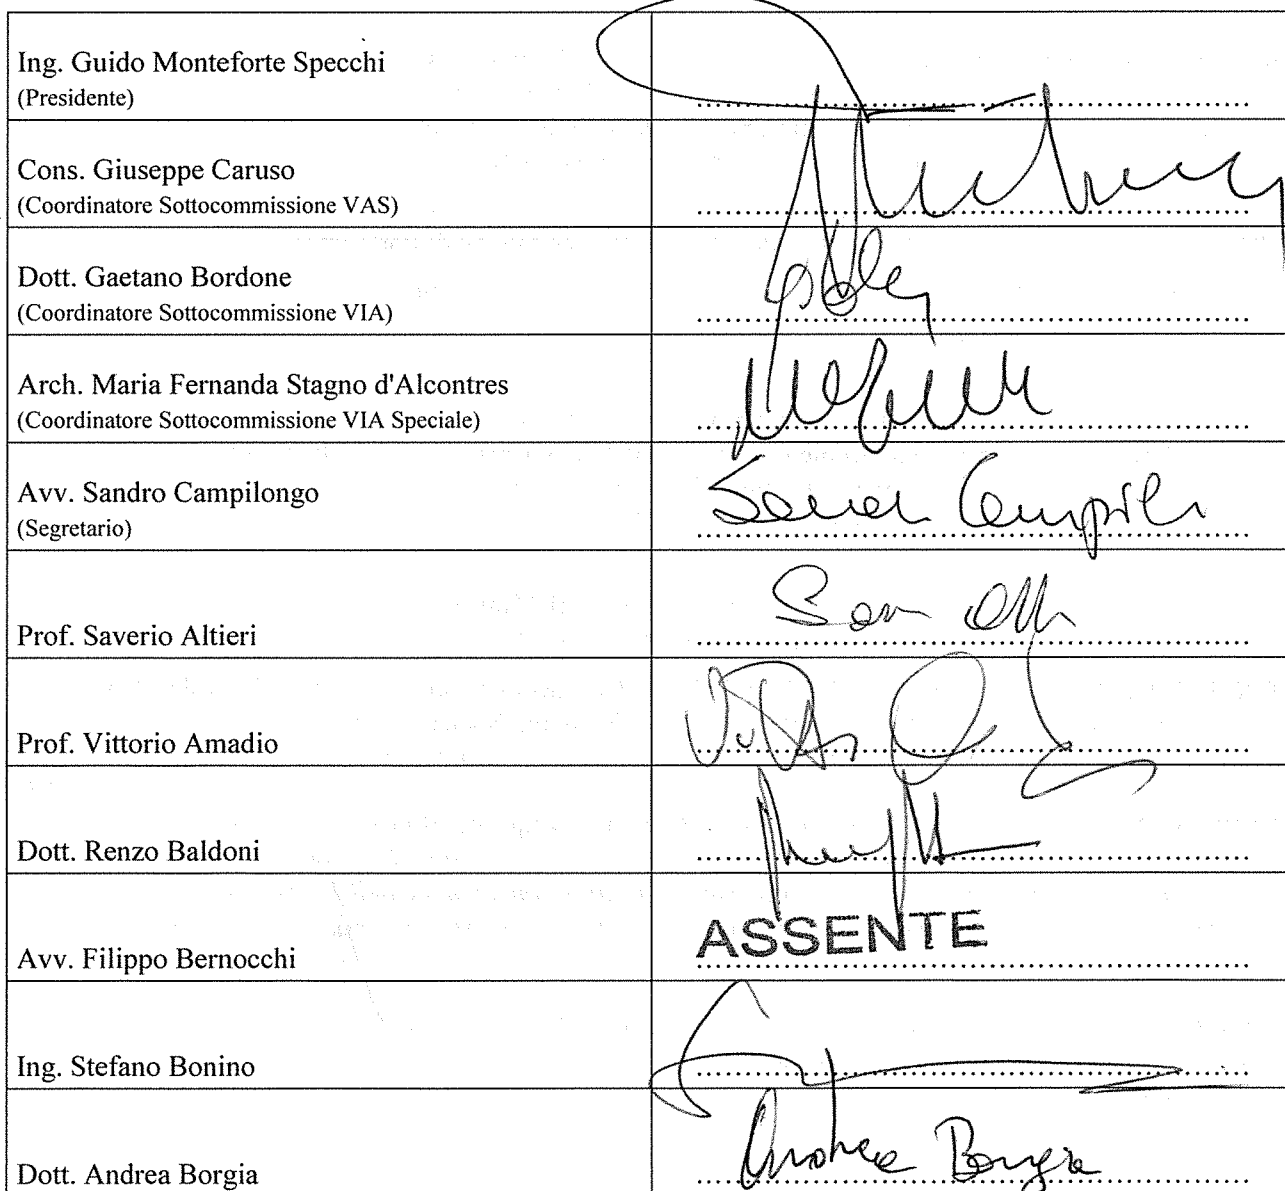 Ing. Guido Monteforte Specchi
(Presidente)
Cons. Giuseppe Caruso
(Coordinatore Sottocommissione VAS)
Dott. Gaetano Bordone
(Coordinatore Sottocommissione VIA)
Arch. Maria Fernanda Stagno d'Alcontres
(Coordinatore Sottocommissione VIA Speciale)
Avv. Sandro Campilongo
(Segretario)
Prof. Saverio Altieri
Prof. Vittorio Amadio
Dott. Renzo Baldoni
Avv. Filippo Bernocchi
ASSENTE
Ing. Stefano Bonino
Dott. Andrea Borgia
Andrea Borgia